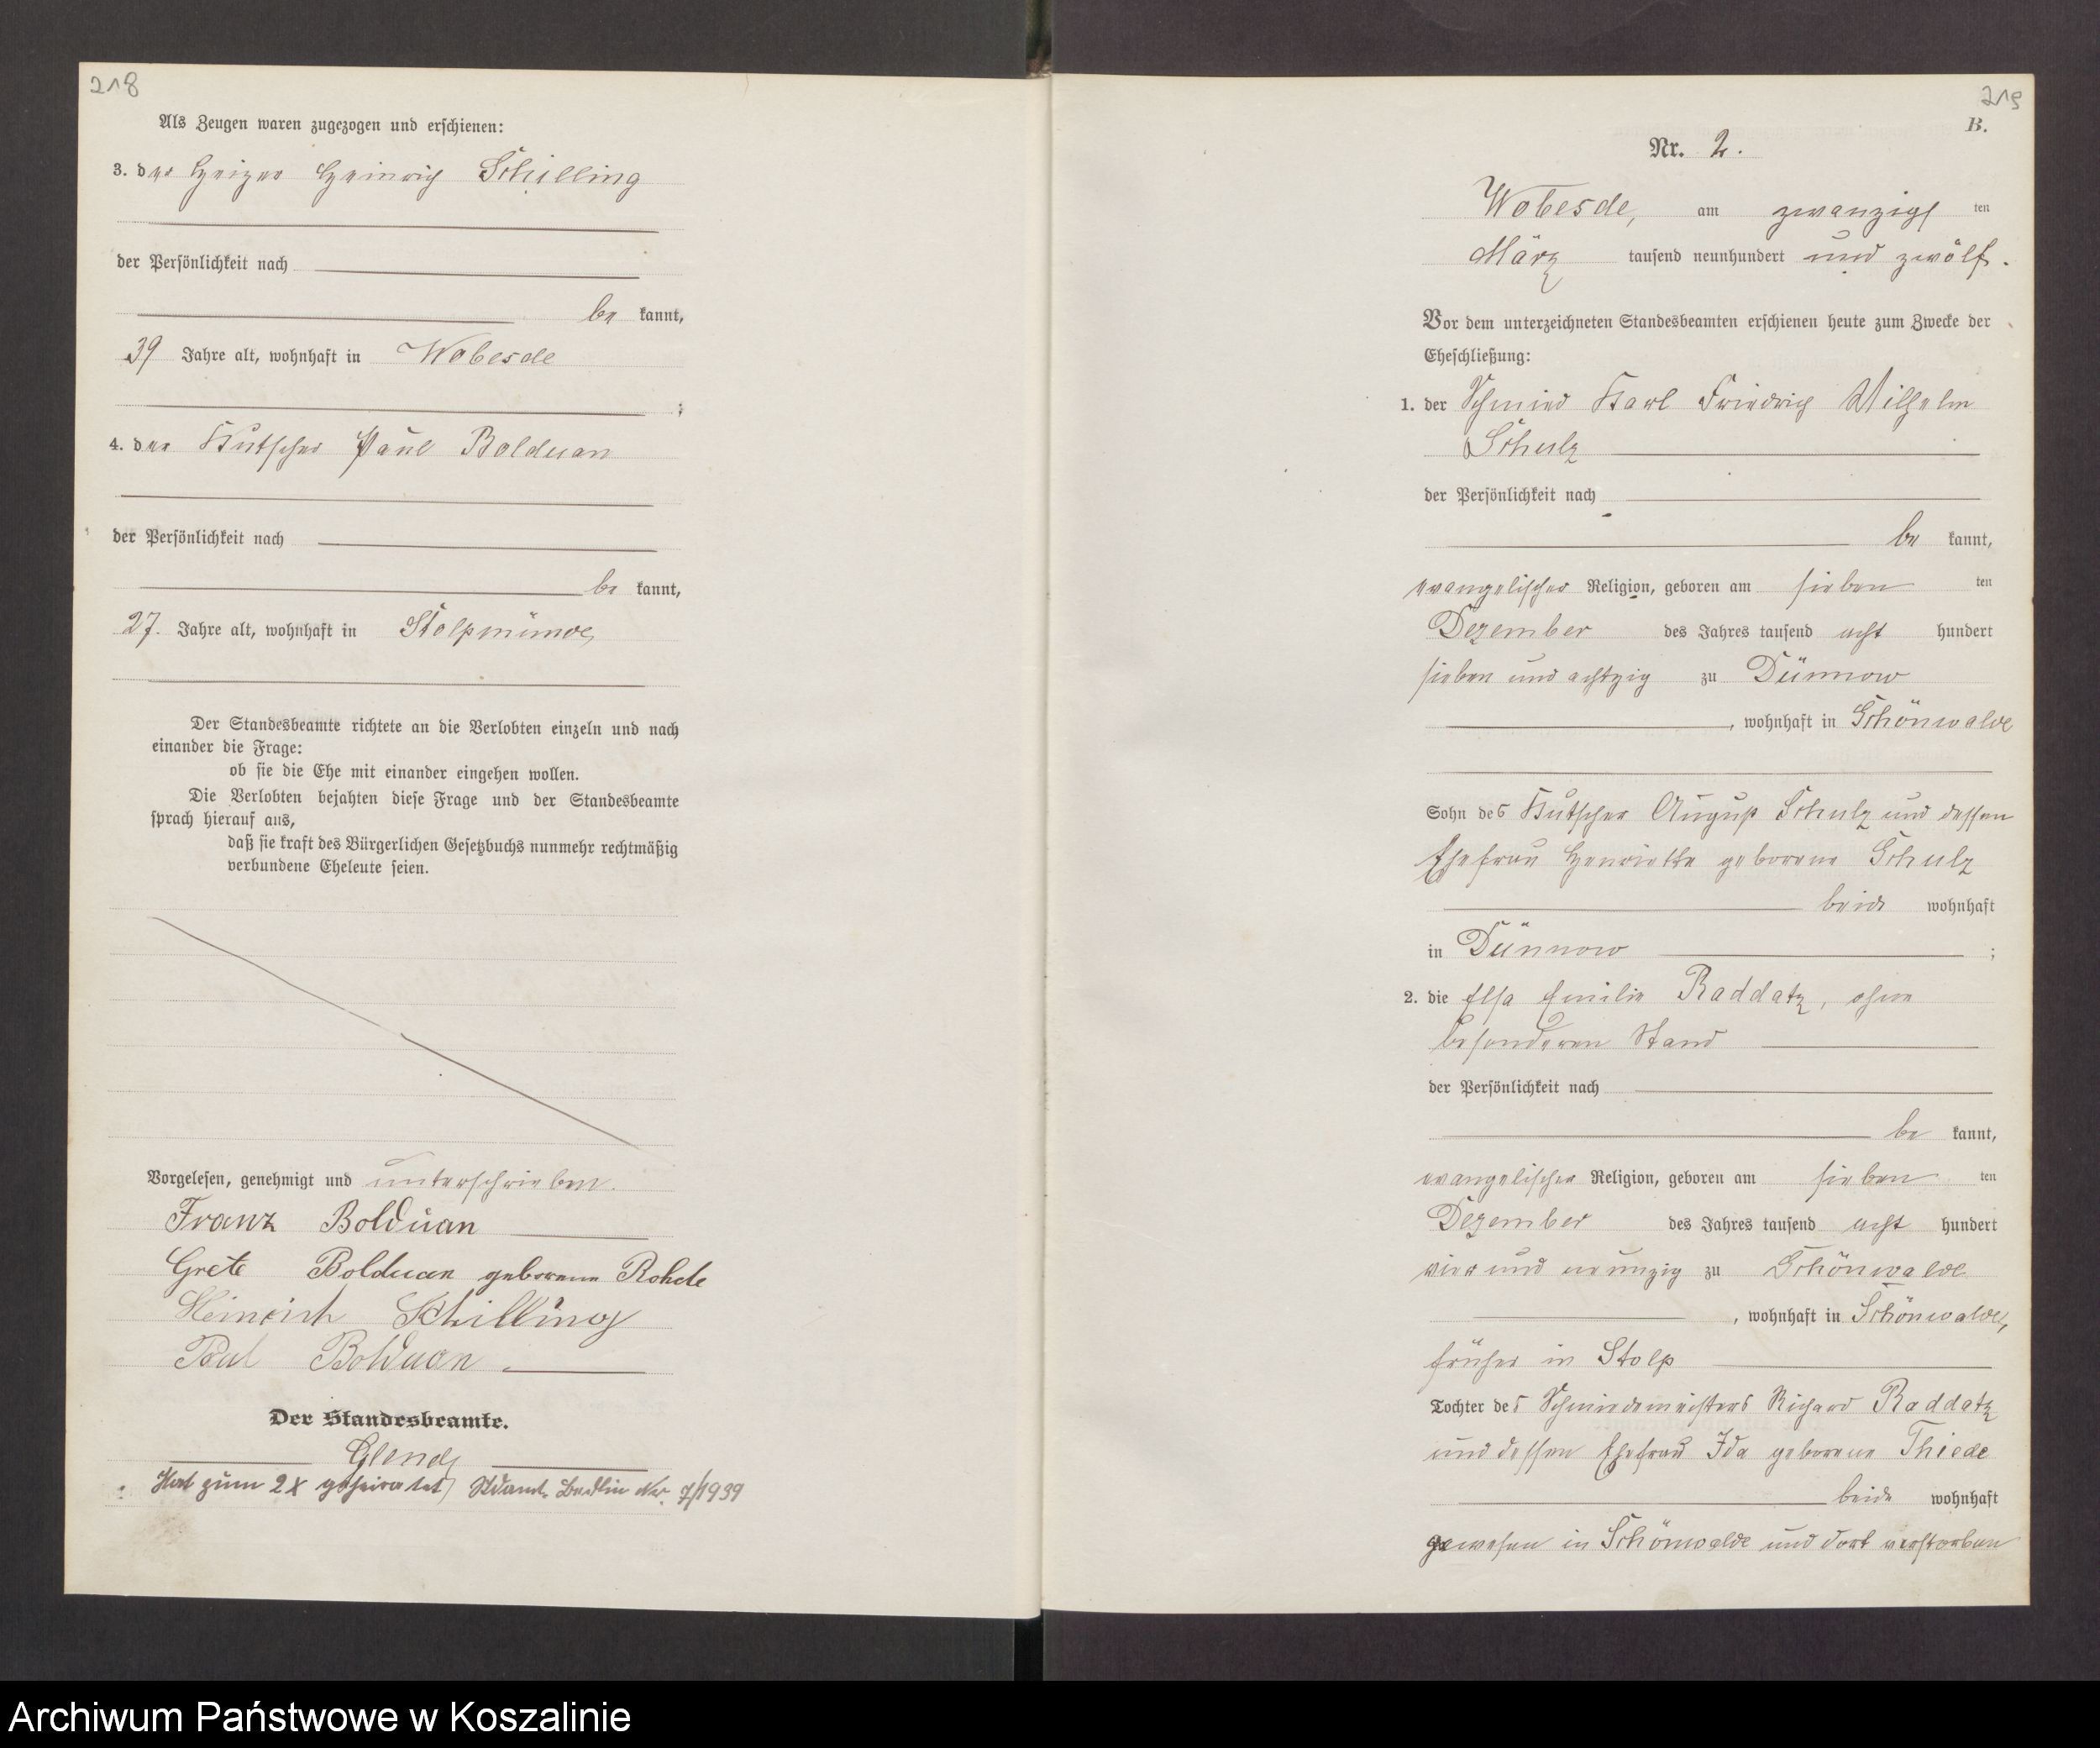 218
Als Zeugen waren zugezogen und erschienen:
3. der Heizer Heinrich Schilling
der Persönlichkeit nach
be kannt,
39 Jahre alt, wohnhaft in Wobesde
;
4. der Kutscher Paul Bolduan
der Persönlichkeit nach
be kannt,
27. Jahre alt, wohnhaft in Stolpmünde,
Der Standesbeamte richtete an die Verlobten einzeln und nach
einander die Frage:
ob sie die Ehe mit einander eingehen wollen.
Die Verlobten bejahten diese Frage und der Standesbeamte
sprach hierauf aus,
daß sie kraft des Bürgerlichen Gesetzbuchs nunmehr rechtmäßig
verbundene Eheleute seien.
Vorgelesen, genehmigt und unterschrieben.
Franz Bolduan
Grete Bolduan geborene Rohde
Heinrich Schilling
Paul Bolduan
Der Standesbeamte.
Hat zum 2 x geheiratet, Nr. 7/1939
219
B.
Nr. 2.
Wobesde, am zwanzigs ten
März tausend neunhundert und zwölf.
Vor dem unterzeichneten Standesbeamten erschienen heute zum Zwecke der
Eheschließung:
1. der Schmied Karl Friedrich Wilhelm
Schulz
der Persönlichkeit nach
be kannt,
evangelischer Religion, geboren am sieben ten
Dezember des Jahres tausend acht hundert
sieben und achtzig zu Dünnow
, wohnhaft in Schönwalde
Sohn des Kutscher August Schulz und dessen
Ehefrau Henriette geborene Schulz
beide wohnhaft
in Dünnow ;
2. die Elsa Emilie Raddatz, ohne
besonderen Stand
der Persönlichkeit nach
be kannt,
evangelischer Religion, geboren am sieben ten
Dezember des Jahres tausend acht hundert
vier und neunzig zu Schönwalde
, wohnhaft in Schönwalde,
früher in Stolp
Tochter des Schmiedemeisters Richard Raddatz
und dessen Ehefrau Ida geborene Thiede
beide wohnhaft
gewesen in Schönwalde und dort verstorben
Archiwum Państwowe w Koszalinie